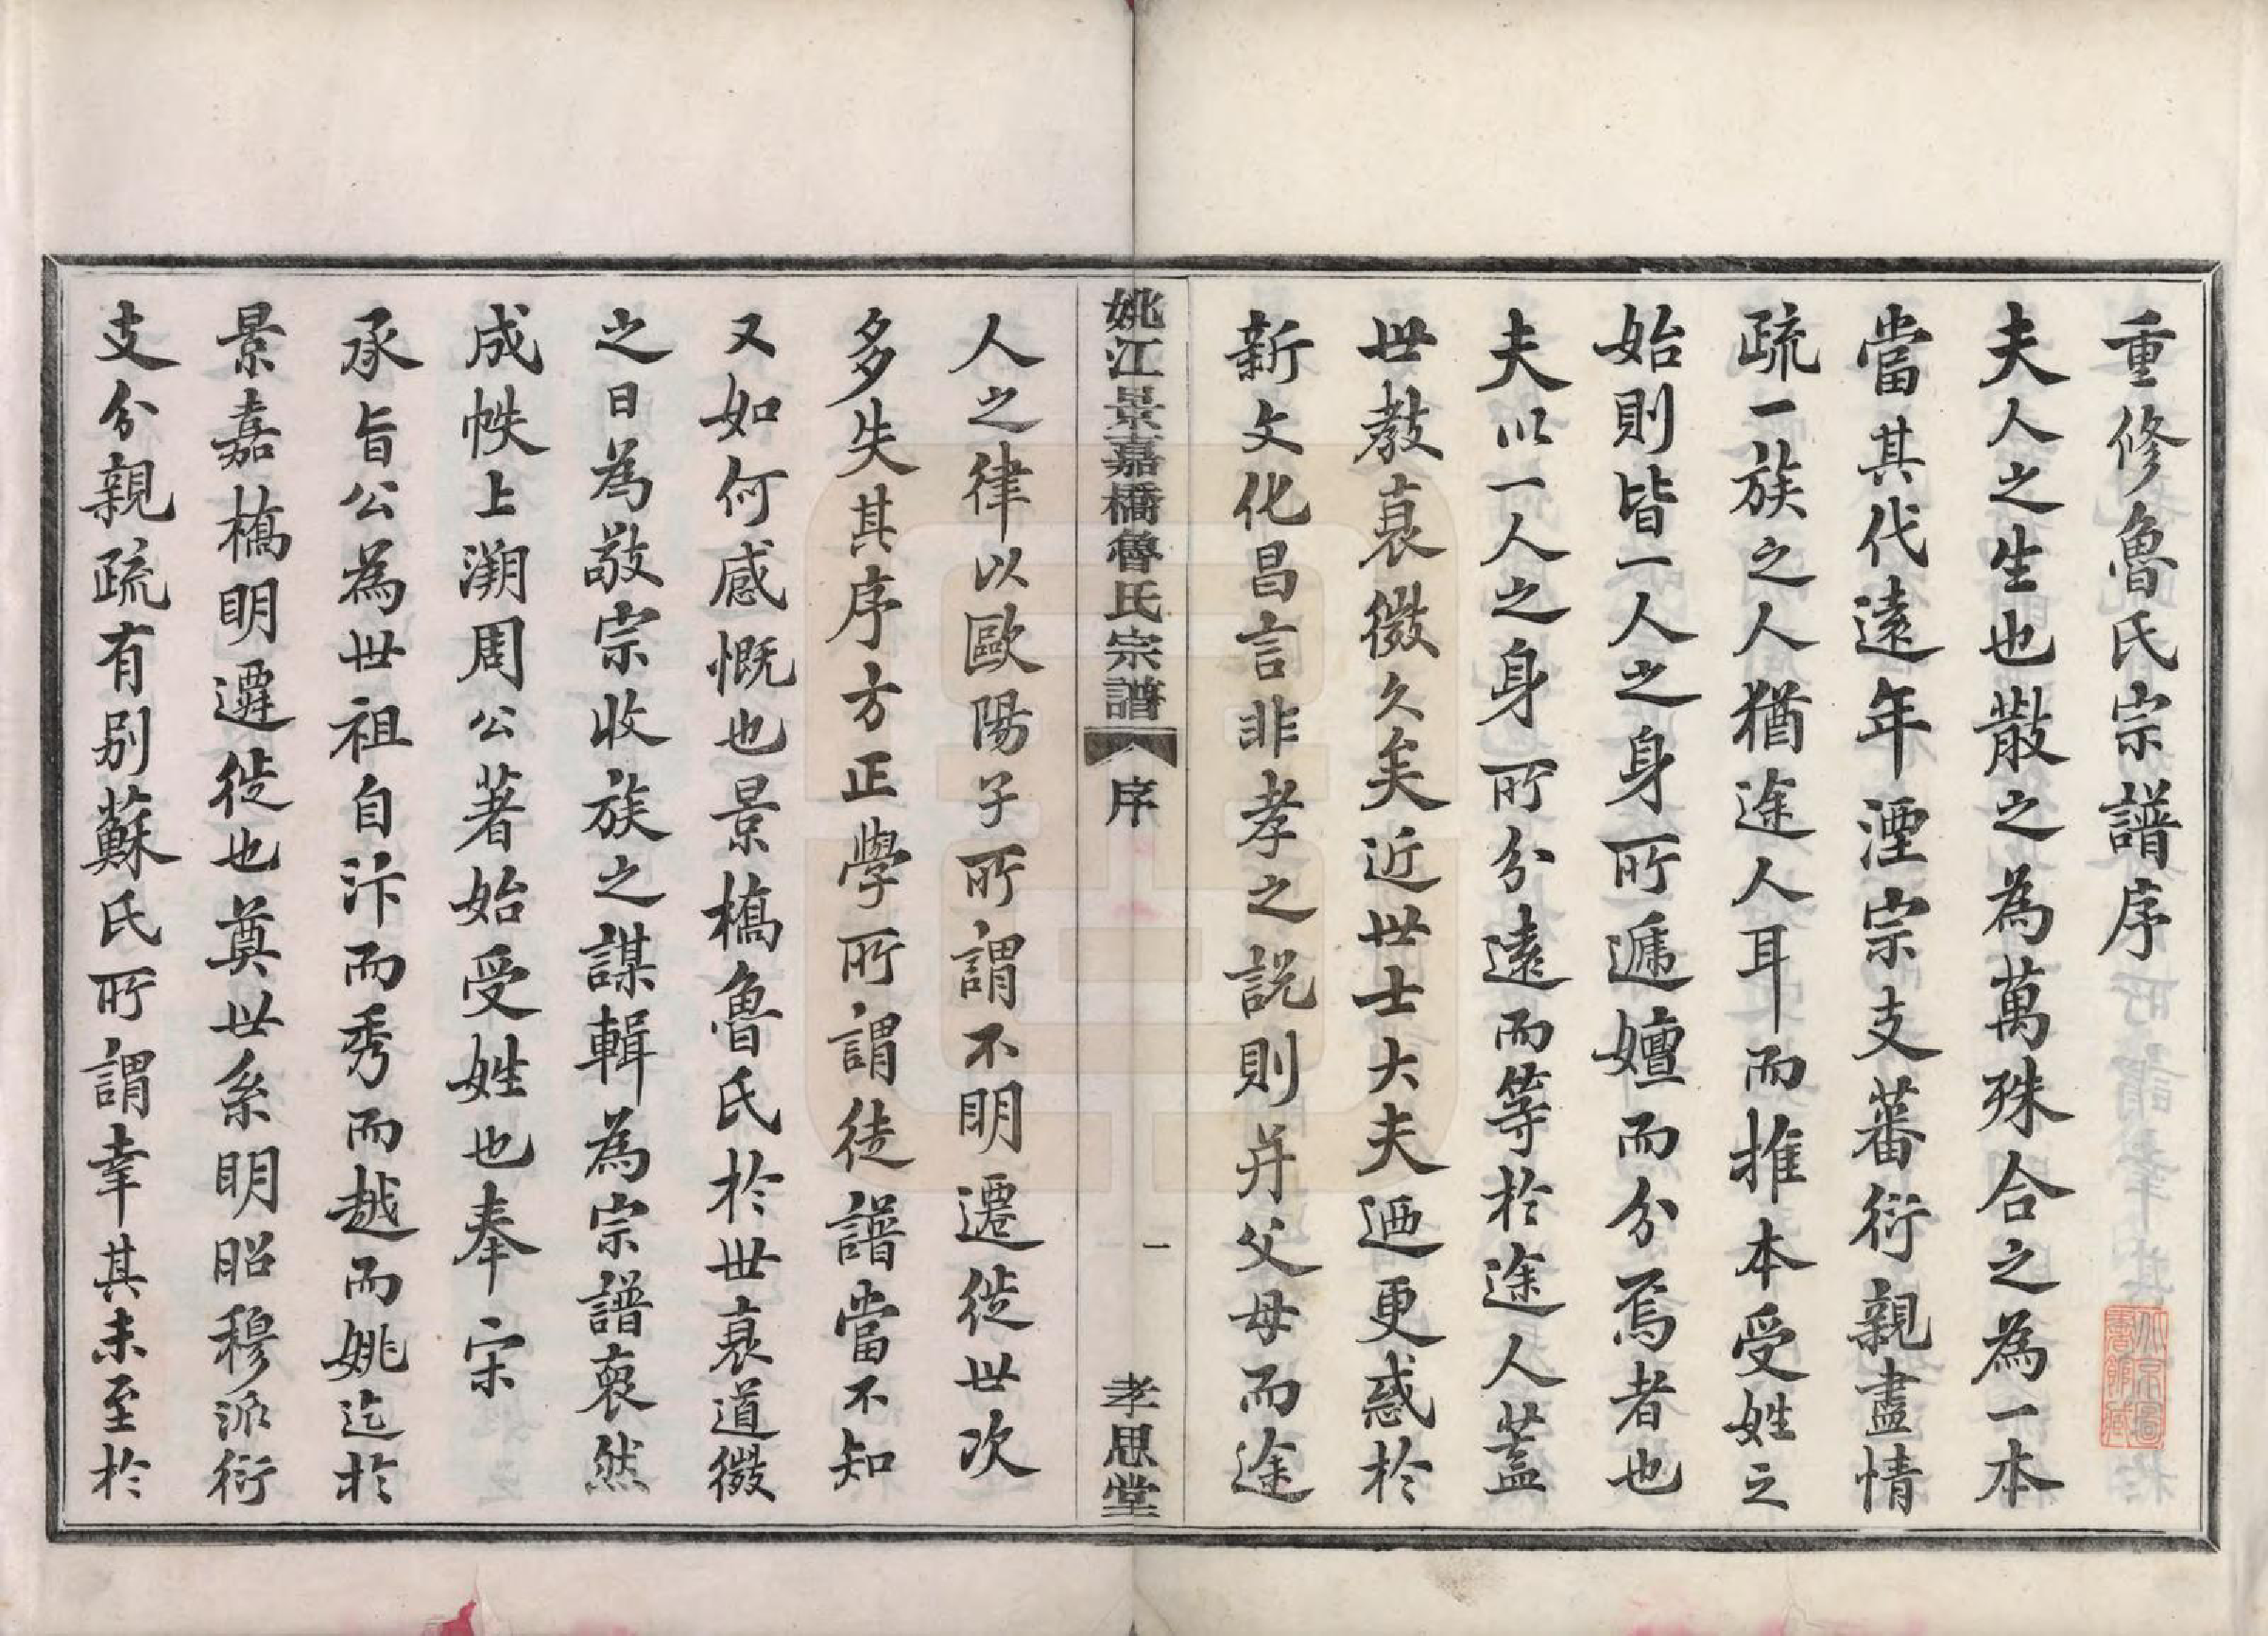 重修魯氏宗譜序
夫人之生也散之為萬殊合之為一本
當其代遠年湮宗支蕃衍親盡情
疏一族之人猶途人耳而推本受姓之
始則皆一人之身所遞嬗而分焉者也
夫以一人之身所分遠而等於途人蓋
世教衰微久矣近世士大夫迺更惑於
新文化昌言非孝之説則并父母而途
姚江景嘉橋魯氏宗譜
序
一
孝思堂
人之律以歐陽子所謂不明遷徙世次
多失其序方正學所謂徒譜當不知
又如何感慨也景橋魯氏於世衰道微
之日為敬宗收族之謀輯為宗譜裒然
成帙上溯周公著始受姓也奉宋
承旨公為世祖自汴而秀而越而姚迄於
景嘉橋明遷徙也奠世系明昭穆派衍
支分親疏有別蘇氏所謂幸其未至於